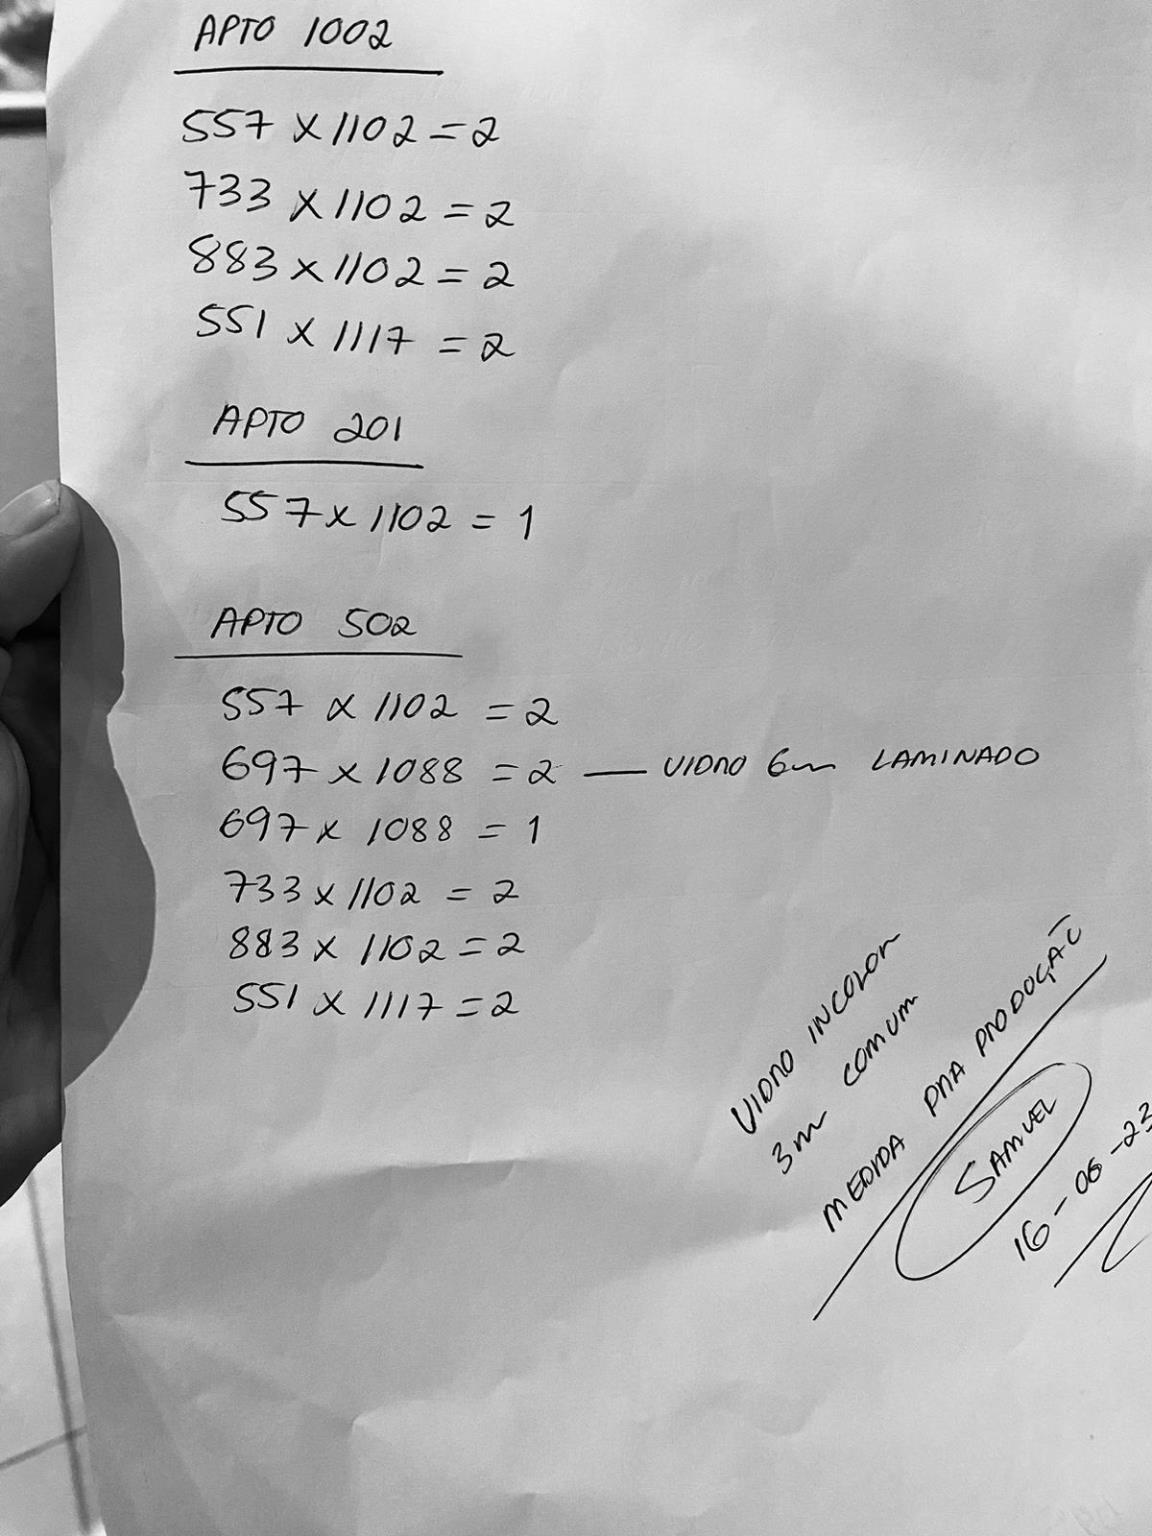 APTO 1002
557 x 1102 = 2
733 x 1102 = 2
883 x 1102 = 2
551 x 1117 = 2
APTO 201
557 x 1102 = 1
APTO 502
557 x 1102 = 2
697 x 1088 = 2 — VIDRO 6m LAMINADO
697 x 1088 = 1
733 x 1102 = 2
883 x 1102 = 2
551 x 1117 = 2
VIDRO INCOLOR
3m COMUM
MEDIDA PRA PRODUÇÃO
SAMUEL
16-06-23